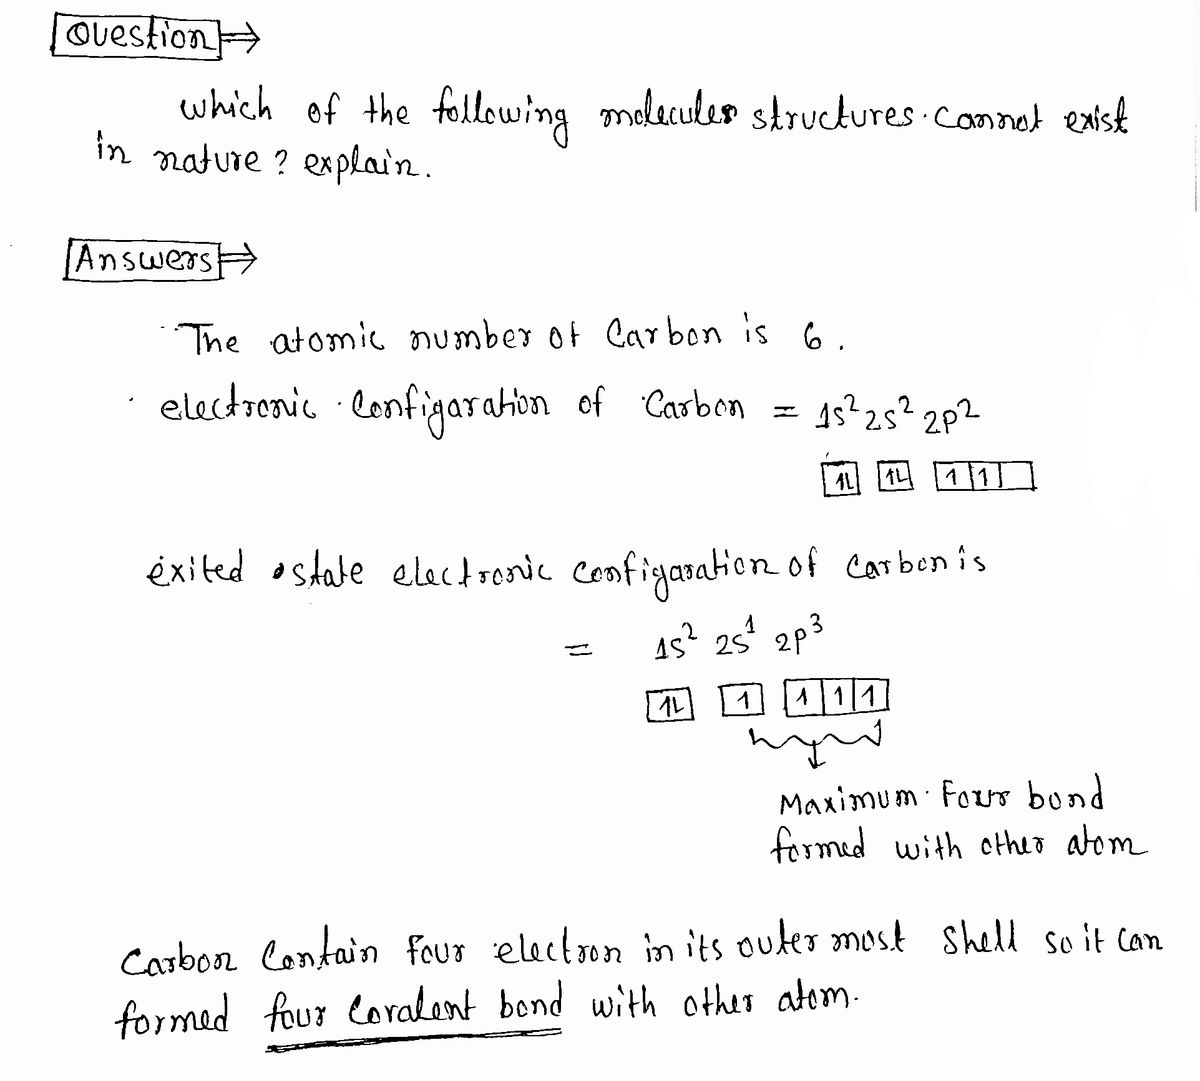 Question ⇒
which of the following molecules structures cannot exist
in nature? explain.
Answers ⇒
The atomic number of Carbon is 6.
electronic Configaration of Carbon = 1s² 2s² 2p²
1L 1L 1 1
exited state electronic configaration of carbon is
= 1s² 2s¹ 2p³
1L 1 1 1 1
Maximum Four bond
formed with other atom
Carbon Contain Four electron in its outer most shell so it can
formed four Covalent bond with other atom.